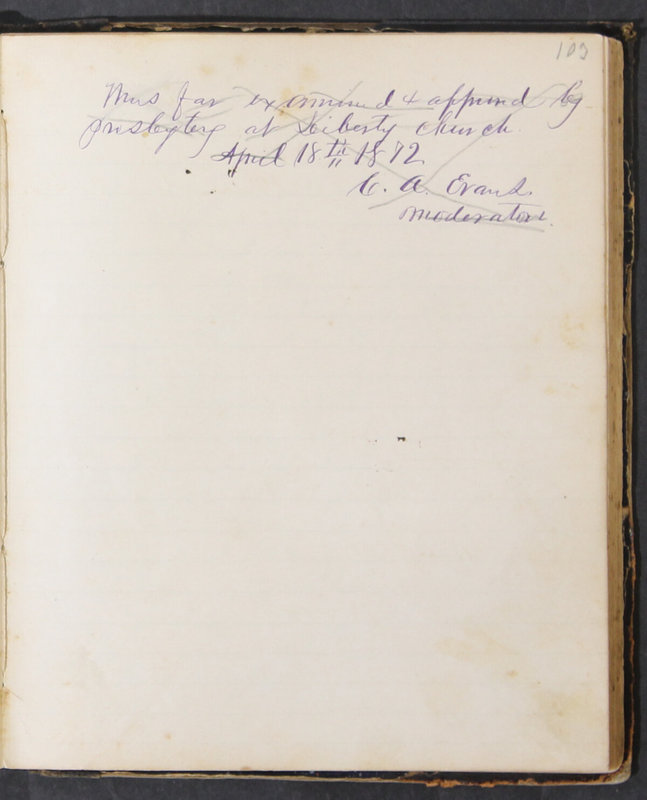 103
Thus far examined & approved by
presbytery at Liberty church.
April 18th 1892
C. A. Evans.
moderator.